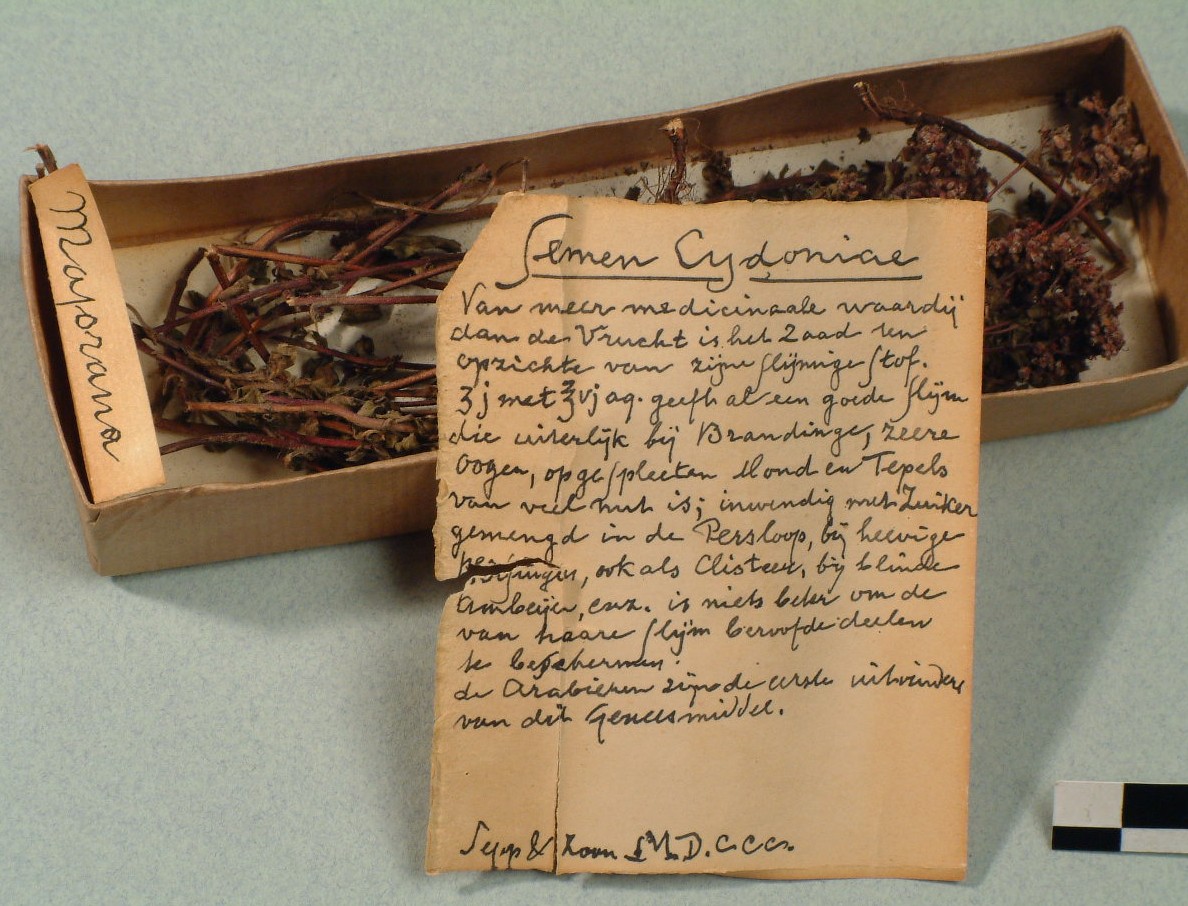 Majorana
Semen Cydoniae
Van meer medicinaale waardij
dan de Vrucht is het Zaad ten
opzichte van zijne slijmige stof.
ʒj met ℥vj aq. geeft al een goede slijm
die uiterlijk bij Brandinge, zeere
Oogen, opgespleeten Mond en Tepels
van veel nut is; inwendig met Zuiker
gemengd in de Persloop, bij heevige
ook als Clisteer, bij blinde
Ambeijen, enz. is niets beter om de
van haare slijm beroofde deelen
te beschermen.
de Arabieren zijn de eerste uitvinders
van dit Geneesmiddel.
Sepp & Zoon MD.CCCC.